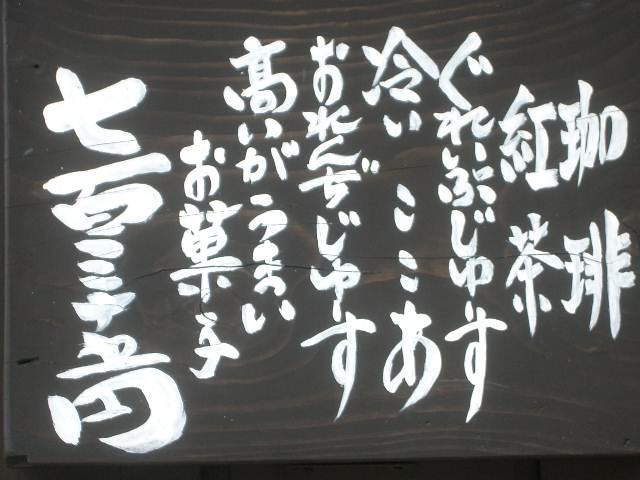 珈琲
紅茶
ぐれーぷじゅーす
冷いここあ
おれんぢじゅーす
高いがうまい
お菓子
七百三十円